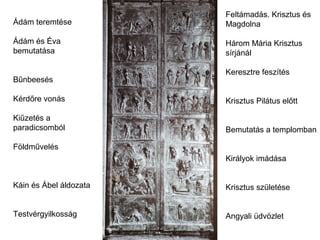 Ádám teremtése
Ádám és Éva
bemutatása
Bűnbeesés
Kérdőre vonás
Kiűzetés a
paradicsomból
Földművelés
Káin és Ábel áldozata
Testvérgyilkosság
Feltámadás. Krisztus és
Magdolna
Három Mária Krisztus
sírjánál
Keresztre feszítés
Krisztus Pilátus előtt
Bemutatás a templomban
Királyok imádása
Krisztus születése
Angyali üdvözlet